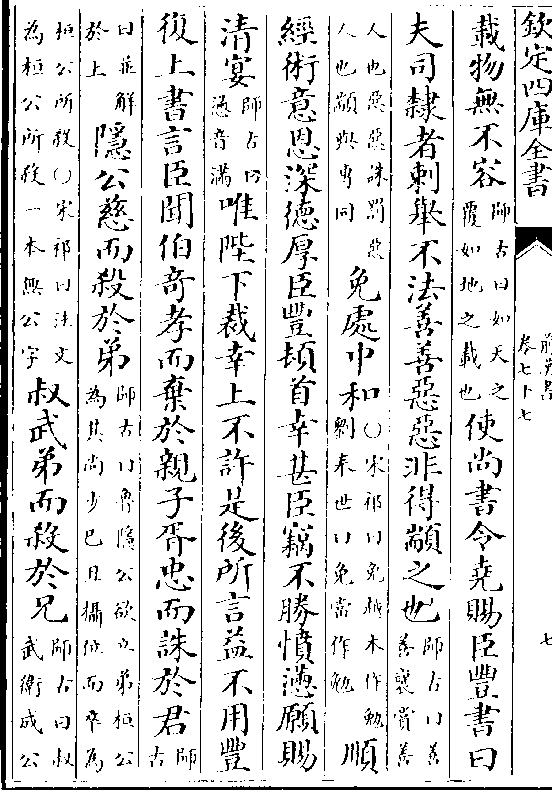 欽定四庫全書
前漢書
卷七十七
七
載物無不容師古曰如天之覆如地之載也使尚書令堯賜臣豐書曰
夫司隸者刺舉不法善善惡惡非得顓之也師古曰善善襃賞善
人也惡惡誅罰惡人也顓與專同免處中和○宋祁曰免越本作勉劉奉世曰免當作勉順
經術意恩深德厚臣豐頓首幸甚臣竊不勝憤懣願賜
清宴師古曰懣音滿唯陛下裁幸上不許是後所言益不用豐
復上書言臣聞伯奇孝而棄於親子胥忠而誅於君師古
曰並解於上隱公慈而殺於弟師古曰魯隱公欲立弟桓公為其尚少己且攝位而卒為
桓公所殺○宋祁曰注文為桓公所殺一本無公字叔武弟而殺於兄師古曰叔武衛成公